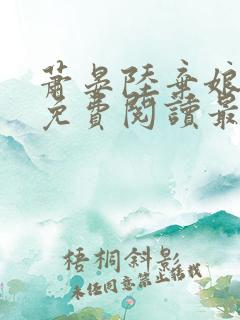 蕭晏陸棄娘
免費閱讀最
梧桐斜影
未經同意禁止轉載